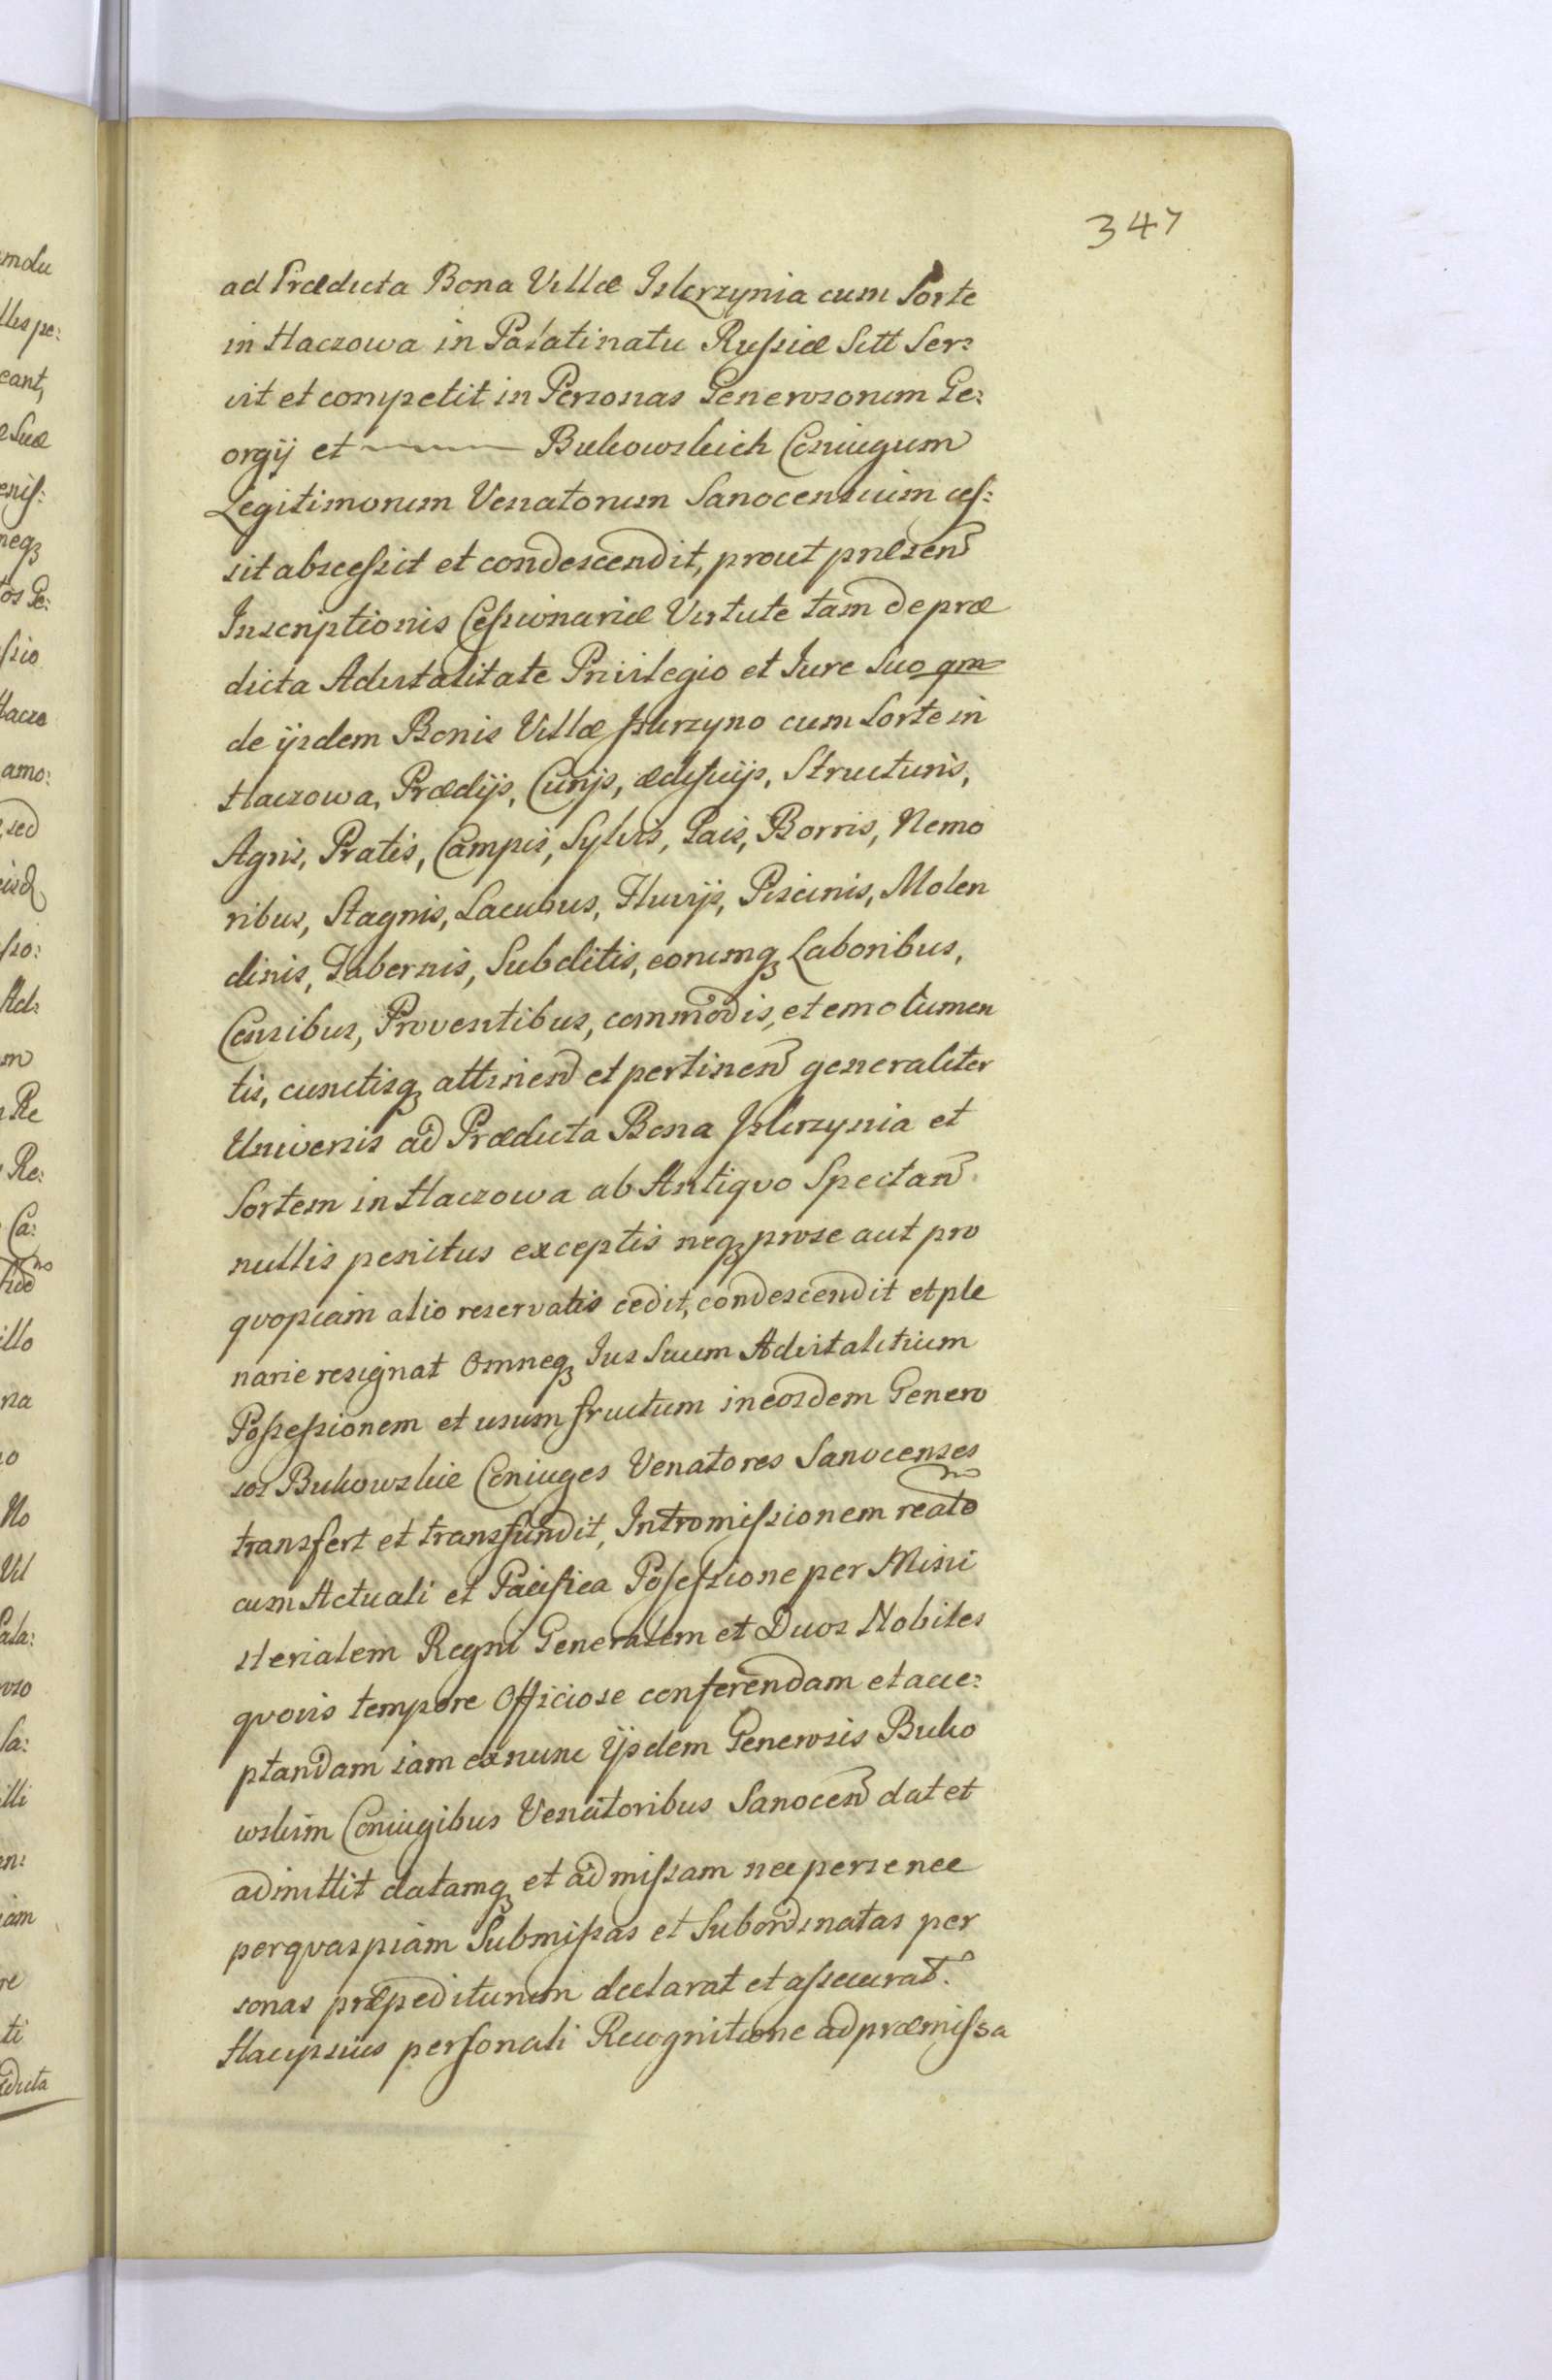 347
ad Prædicta Bona Villæ Iskrzynia cum Sorte
in Haczowa in Palatinatu Russiæ Sitt Ser:
vit et competit in Personas Generosorum Ge:
orgÿ et ——— Bukowskich Coniugum
Legitimorum Venatorum Sanocensium ces:
sit abscessit et condescendit, prout præsen
Inscriptionis Cessionariæ Virtute tam de præ
dicta Advitalitate Privilegio et Iure Suo qm
de ÿsdem Bonis Villæ Iskrzyno cum Sorte in
Haczowa, Prædÿs, Curÿs, ædificÿs, Structuris,
Agris, Pratis, Campis, Sylvis, Gais, Borris, Nemo
ribus, Stagnis, Lacubus, Fluvÿs, Piscinis, Molen
dinis, Tabernis, Subditis, eorumq₃ Laboribus,
Censibus, Proventibus, commodis, et emolumen
tis, cunctisq₃ attinen et pertinen generaliter
Universis ad Prædicta Bona Iskrzynia et
Sortem in Haczowa ab Antiqvo Spectan
nullis penitus exceptis neq₃ pro se aut pro
qvopiam alio reservatis cedit, condescendit et ple
narie resignat Omneq₃ Ius Suum Advitalitium
Possessionem et usum fructum in eosdem Genero
sos Bukowskie Coniuges Venatores Sanocenses
transfert et transfundit, Intromissionem reato
cum Actuali et Pacifica Possessione per Mini
sterialem Regni Generalem et Duos Nobiles
qvovis tempore Officiose conferendam et acce:
ptandam iam ex nunc Ÿsdem Generosis Buko
wskim Coniugibus Venatoribus Sanocen dat et
admittit datamq₃ et admissam nec per se nec
per qvaspiam Submissas et Subordinatas per
sonas præpediturum declarat et assecurat.
Hac ipsius personali Recognitione ad præmissa